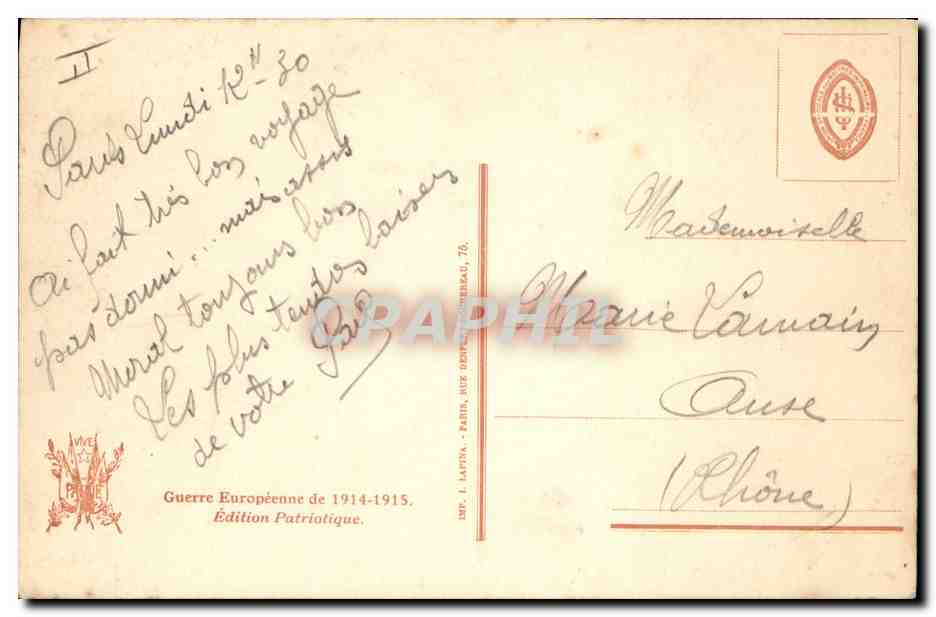 II
Paris Lundi 12H-30
Ai fait très bon voyage
pas dormi... mais assis
Moral toujours bon
Les plus tendres baisers
de votre
VIVE
Guerre Européenne de 1914-1915.
Édition Patriotique.
IMP. I. LAPINA. - PARIS, RUE DENFERT-ROCHEREAU, 75.
CPAPHIL
Mademoiselle
Marie
Anse
(Rhône)